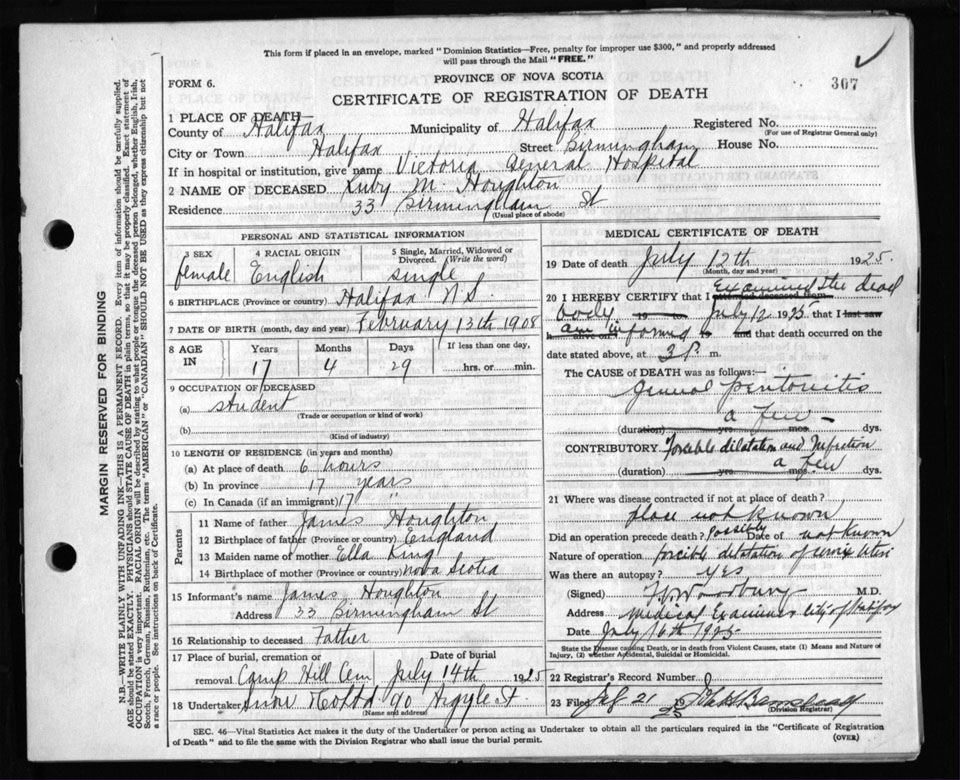 This form if placed in an envelope, marked "Dominion Statistics—Free, penalty for improper use $300," and properly addressed
will pass through the Mail "FREE."
FORM 6.
PROVINCE OF NOVA SCOTIA
CERTIFICATE OF REGISTRATION OF DEATH
307
1 PLACE OF DEATH—
County of Halifax Municipality of Halifax Registered No.
(For use of Registrar General only)
City or Town Halifax Street Birmingham House No.
If in hospital or institution, give name Victoria General Hospital
2 NAME OF DECEASED Ruby M. Houghton
Residence 33 Birmingham St
(Usual place of abode)
PERSONAL AND STATISTICAL INFORMATION
3 SEX female
4 RACIAL ORIGIN English
5 Single, Married, Widowed or Divorced. (Write the word) single
6 BIRTHPLACE (Province or country) Halifax N.S.
7 DATE OF BIRTH (month, day and year) February 13th 1908
8 AGE IN Years Months Days If less than one day,
17 4 29 hrs. or min.
9 OCCUPATION OF DECEASED
(a) student
(Trade or occupation or kind of work)
(b)
(Kind of industry)
10 LENGTH OF RESIDENCE (in years and months)
(a) At place of death 6 hours
(b) In province 17 years
(c) In Canada (if an immigrant) 17 "
Parents
11 Name of father James Houghton
12 Birthplace of father (Province or country) England
13 Maiden name of mother Ella King
14 Birthplace of mother (Province or country) Nova Scotia
15 Informant's name James Houghton
Address 33 Birmingham St
16 Relationship to deceased Father
17 Place of burial, cremation or removal Camp Hill Cem Date of burial July 14th 1925
18 Undertaker Snow & Co Ltd 90 Argyle St.
(Name and address)
MEDICAL CERTIFICATE OF DEATH
19 Date of death July 12th 1925.
(Month, day and year)
20 I HEREBY CERTIFY that I attended deceased from Examined the dead
body to July 12 1925 that I last saw
alive on and that death occurred on the
date stated above, at 3 P. m.
The CAUSE OF DEATH was as follows:—
General peritonitis
a few
(duration) yrs. mos. dys.
CONTRIBUTORY. Forcible dilatation and Infection
a few
(duration) yrs. mos. dys.
21 Where was disease contracted if not at place of death?
place not known
Did an operation precede death? Possibly Date of not known
Nature of operation forcible dilatation of cervix uteri
Was there an autopsy? Yes
(Signed) M.D.
Address Medical Examiner City of Halifax
Date July 16th 1925
State the Disease causing Death, or in death from Violent Causes, state (1) Means and Nature of
Injury, (2) whether Accidental, Suicidal or Homicidal.
22 Registrar's Record Number
23 Filed 21 1925
Division Registrar
SEC. 46—Vital Statistics Act makes it the duty of the Undertaker or person acting as Undertaker to obtain all the particulars required in the "Certificate of Registration
of Death" and to file the same with the Division Registrar who shall issue the burial permit.
(OVER)
MARGIN RESERVED FOR BINDING
N.B.—WRITE PLAINLY WITH UNFADING INK—THIS IS A PERMANENT RECORD. Every item of information should be carefully supplied.
AGE should be stated EXACTLY. PHYSICIANS should STATE CAUSE OF DEATH in plain terms, so that it may be properly classified. Exact statement of
OCCUPATION is very important. RACIAL ORIGIN will be described by stating to what people or tongue the deceased person belonged, whether English, Irish,
Scotch, French, German, Russian, Ruthenian, etc. The terms "AMERICAN" or "CANADIAN" SHOULD NOT BE USED as they express citizenship but not
a race or people. See instructions on back of Certificate.